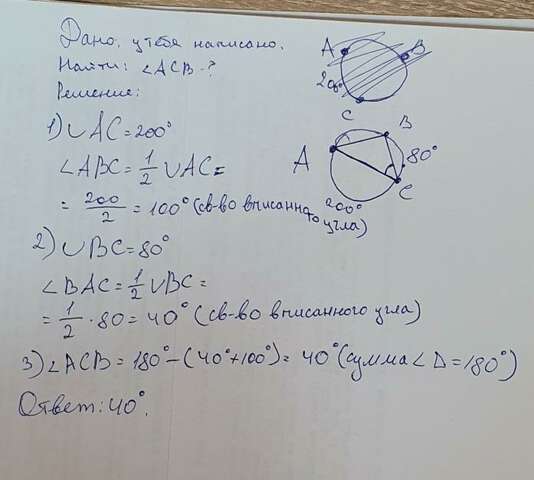 Дано, у тебя написано.
Найти: ∠ACB -?
Решение:
A
B
200°
C
1) ∪AC = 200°
∠ABC = 1/2 ∪AC =
= 200/2 = 100° (св-во вписанного угла)
A
B
80°
C
200°
2) ∪BC = 80°
∠BAC = 1/2 ∪BC =
= 1/2 · 80 = 40° (св-во вписанного угла)
3) ∠ACB = 180° - (40° + 100°) = 40° (сумма ∠ Δ = 180°)
Ответ: 40°.